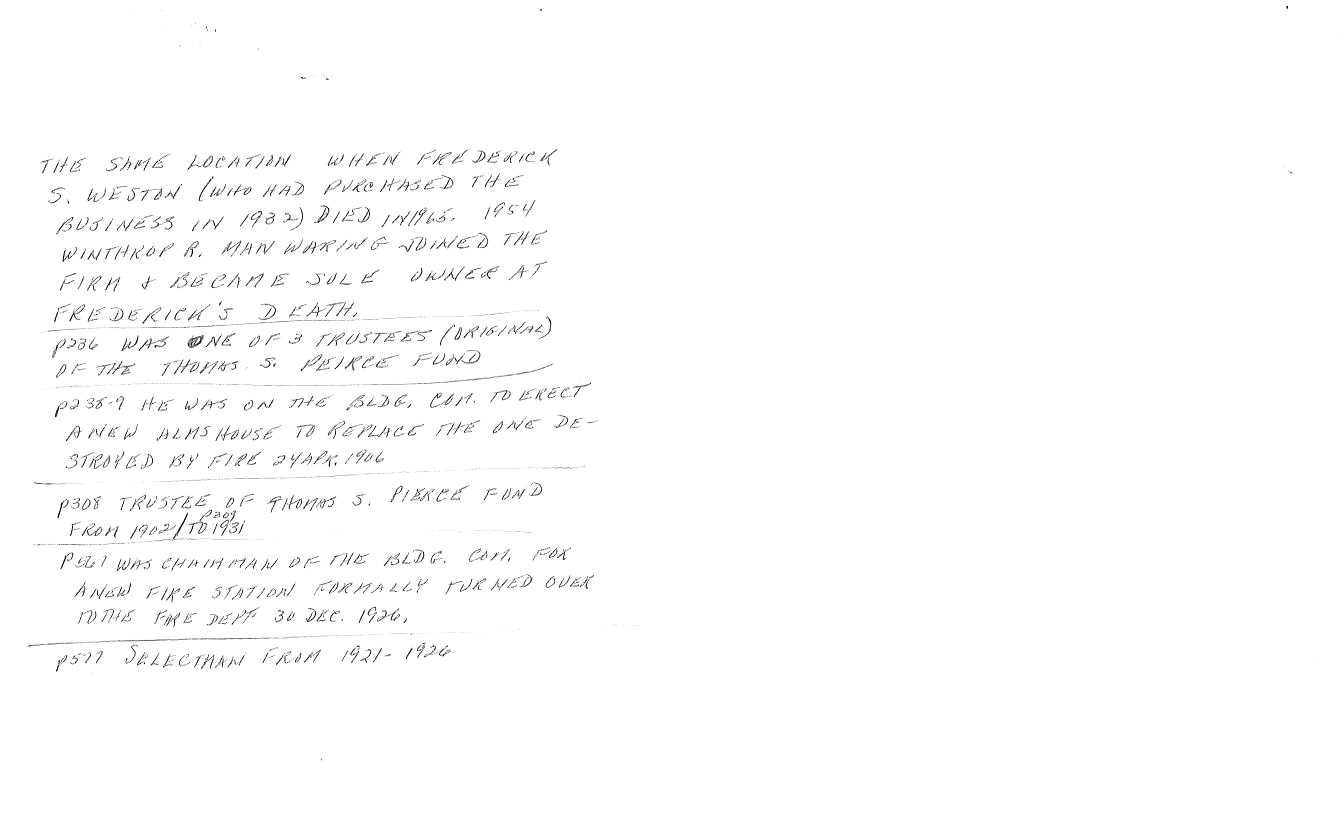 THE SAME LOCATION WHEN FREDERICK
S. WESTON (WHO HAD PURCHASED THE
BUSINESS IN 1932) DIED IN 1965. 1954
WINTHROP R. MANWARING JOINED THE
FIRM & BECAME SOLE OWNER AT
FREDERICK'S DEATH.
p236 WAS ONE OF 3 TRUSTEES (ORIGINAL)
OF THE THOMAS S. PEIRCE FUND
p238-9 HE WAS ON THE BLDG. COM. TO ERECT
A NEW ALMSHOUSE TO REPLACE THE ONE DE-
STROYED BY FIRE 24 APR. 1906
p308 TRUSTEE OF THOMAS S. PIERCE FUND
p309
FROM 1902/TO 1931
WAS CHAIRMAN OF THE BLDG. COM. FOR
A NEW FIRE STATION FORMALLY TURNED OVER
TO THE FIRE DEPT 30 DEC. 1926.
p577 SELECTMAN FROM 1921-1926